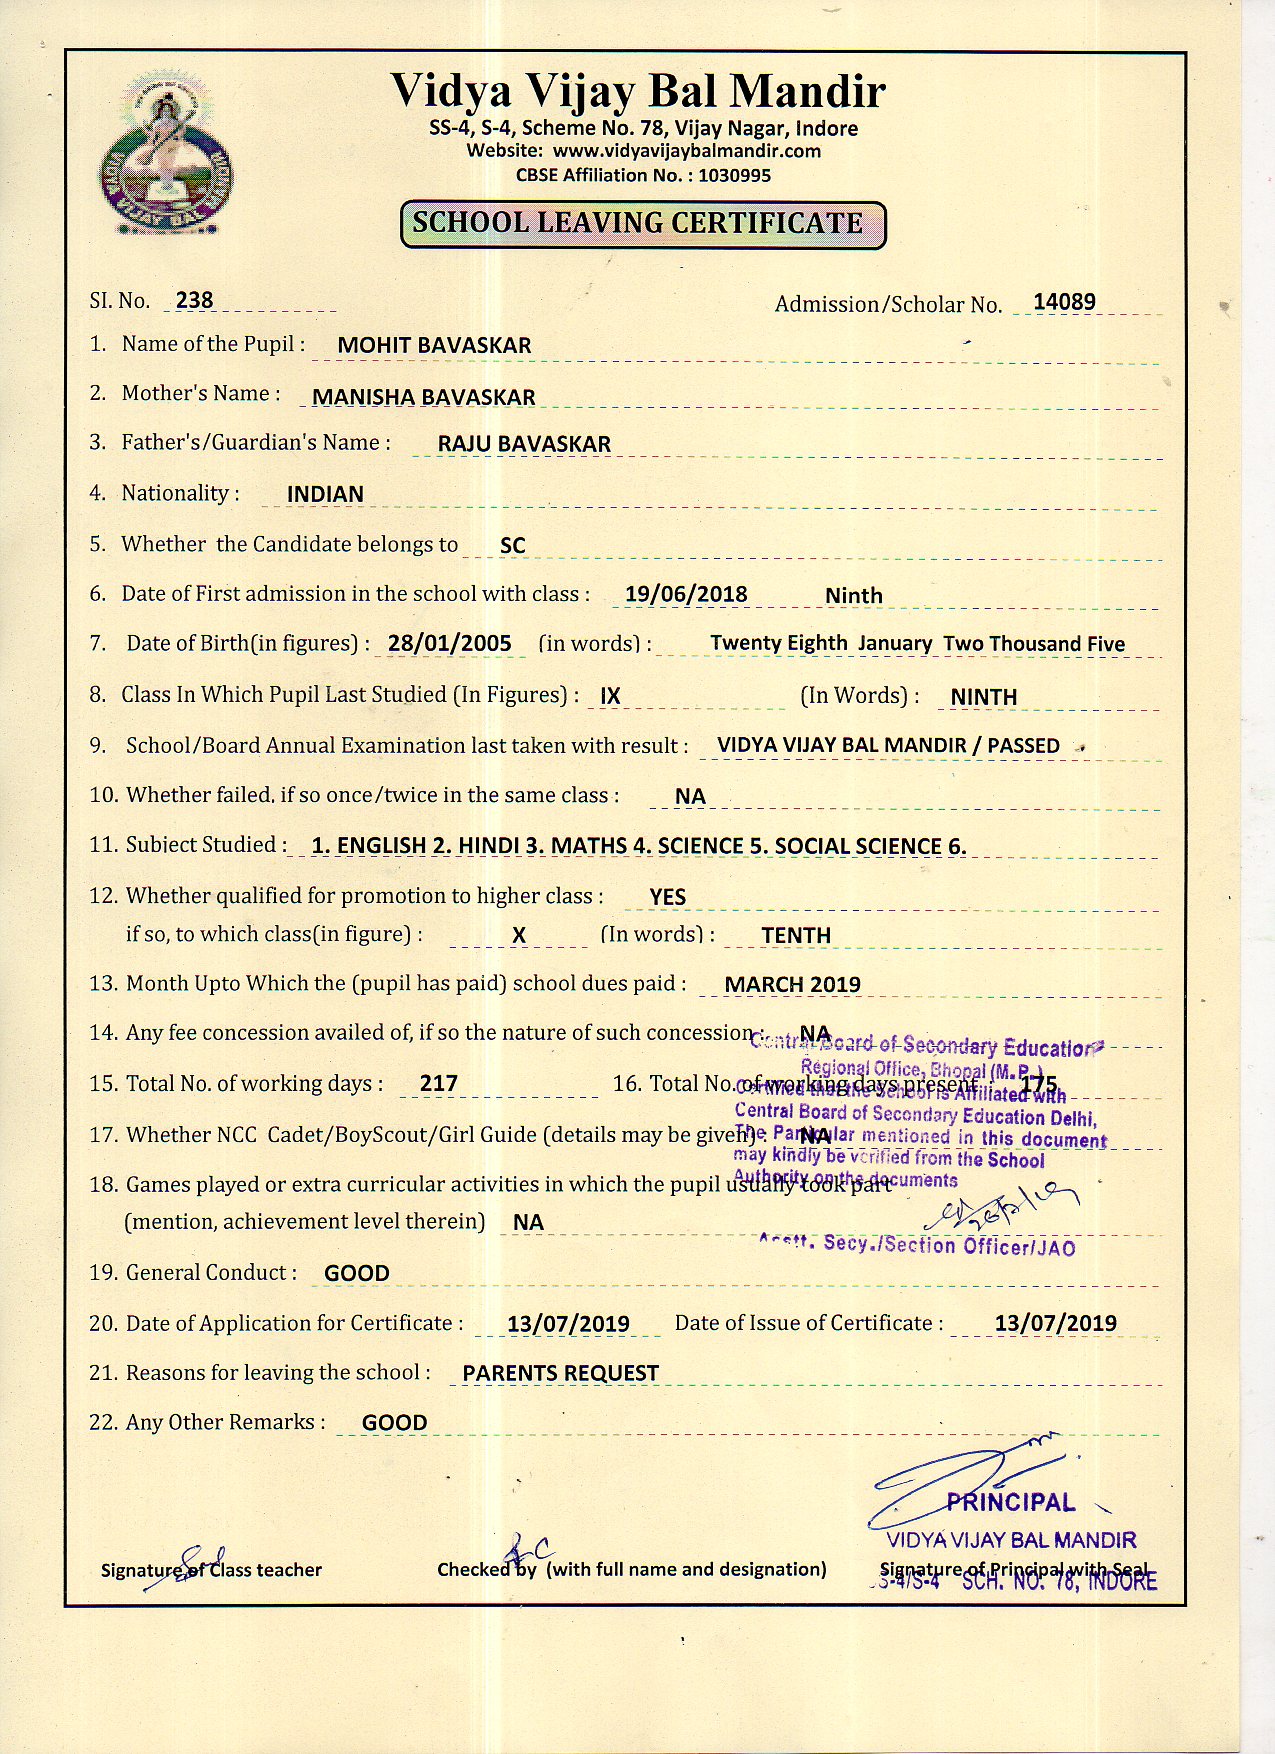 Vidya Vijay Bal Mandir
SS-4, S-4, Scheme No. 78, Vijay Nagar, Indore
Website: www.vidyavijaybalmandir.com
CBSE Affiliation No. : 1030995
VIDYA VIJAY BAL
SCHOOL LEAVING CERTIFICATE
SI. No. 238 Admission/Scholar No. 14089
1. Name of the Pupil : MOHIT BAVASKAR
2. Mother's Name : MANISHA BAVASKAR
3. Father's/Guardian's Name : RAJU BAVASKAR
4. Nationality : INDIAN
5. Whether the Candidate belongs to SC
6. Date of First admission in the school with class : 19/06/2018 Ninth
7. Date of Birth(in figures) : 28/01/2005 (in words) : Twenty Eighth January Two Thousand Five
8. Class In Which Pupil Last Studied (In Figures) : IX (In Words) : NINTH
9. School/Board Annual Examination last taken with result : VIDYA VIJAY BAL MANDIR / PASSED
10. Whether failed, if so once/twice in the same class : NA
11. Subject Studied : 1. ENGLISH 2. HINDI 3. MATHS 4. SCIENCE 5. SOCIAL SCIENCE 6.
12. Whether qualified for promotion to higher class : YES
if so, to which class(in figure) : X (In words) : TENTH
13. Month Upto Which the (pupil has paid) school dues paid : MARCH 2019
14. Any fee concession availed of, if so the nature of such concession : NA
Central Board of Secondary Education
Regional Office, Bhopal (M.P.)
15. Total No. of working days : 217 16. Total No. of working days present : 175
Certified that the School is Affiliated with
Central Board of Secondary Education Delhi,
17. Whether NCC Cadet/BoyScout/Girl Guide (details may be given) : NA
The Particular mentioned in this document
may kindly be verified from the School
Authority on the documents
18. Games played or extra curricular activities in which the pupil usually took part
(mention, achievement level therein) NA
Asstt. Secy./Section Officer/JAO
19. General Conduct : GOOD
20. Date of Application for Certificate : 13/07/2019 Date of Issue of Certificate : 13/07/2019
21. Reasons for leaving the school : PARENTS REQUEST
22. Any Other Remarks : GOOD
PRINCIPAL
VIDYA VIJAY BAL MANDIR
Signature of Class teacher Checked by (with full name and designation) Signature of Principal with Seal
S-4/S-4 SCH. NO. 78, INDORE